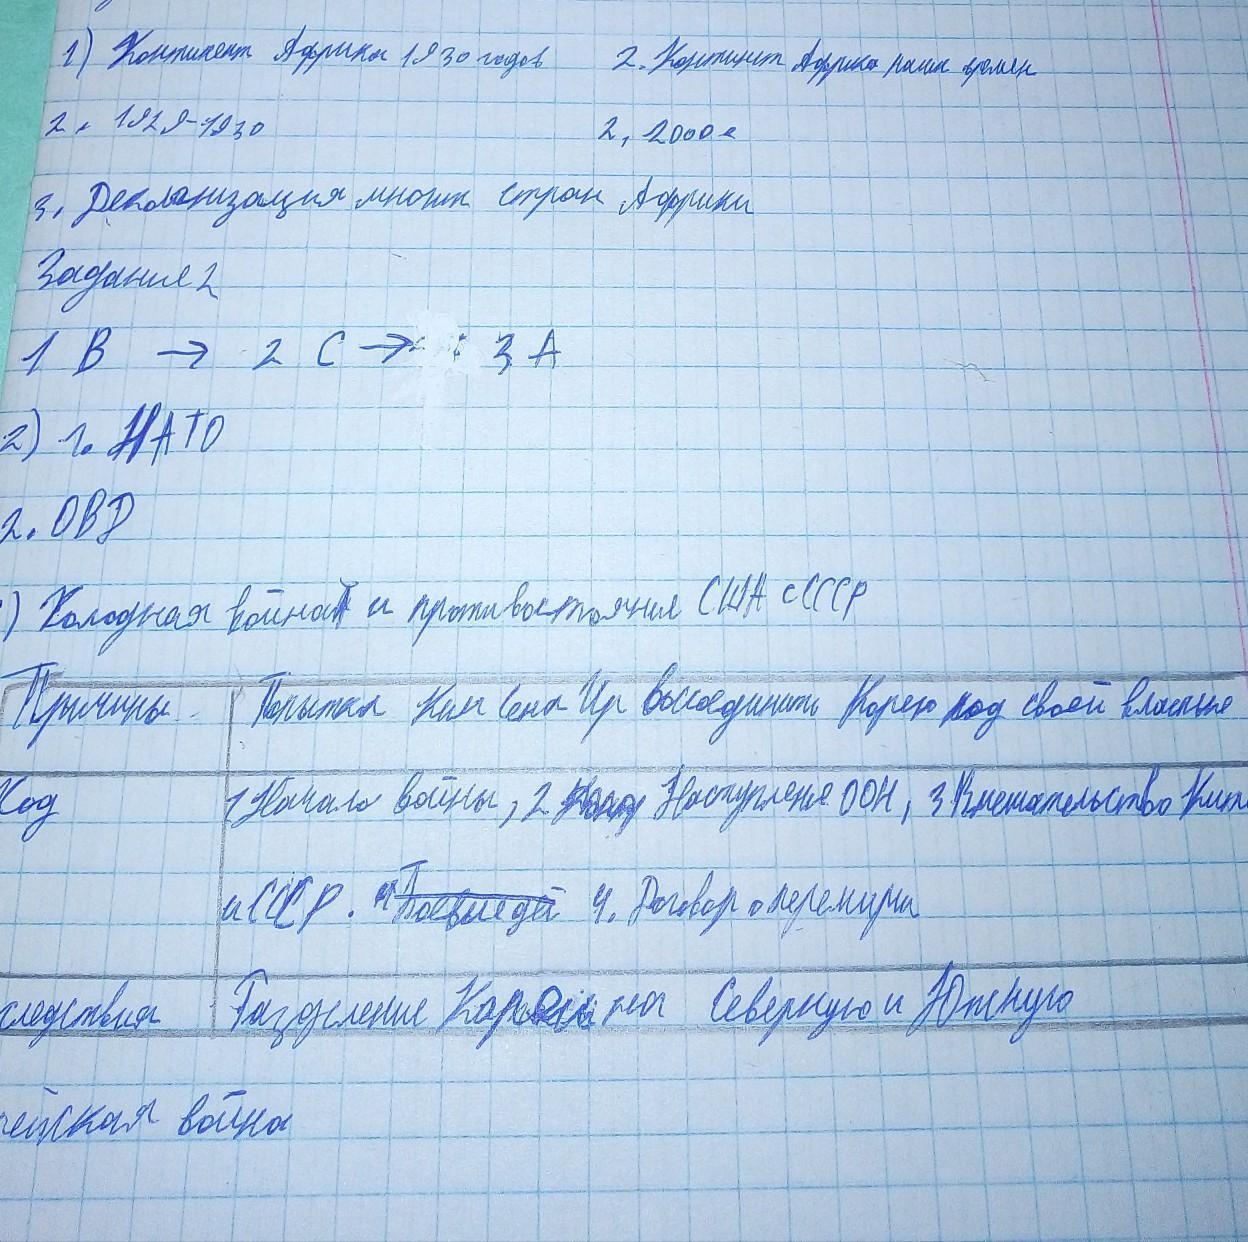 1) Континент Африки 1930 годов 2. Континт Африка наших времен
2. 1929-1930 2, 2000е
3. Деколонизация многих стран Африки
Задание 2
1 В → 2 С → 3 А
2) 1. НАТО
2. ОВД
) Холодная война и противостояния США с СССР
Причины Попытка Ким Сена Ир воссоединить Корею под своей властью
Ход 1 Начало войны, 2 Наступление ООН, 3 Вмешательство Кит
и СССР. 4. Договор о перемирии
следствия Разделение Кореи на Северную и Южную
ейская война